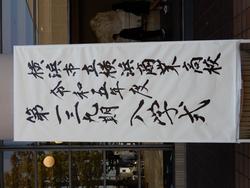 横浜市立横浜商業高校
令和五年度
第一三九期 入学式